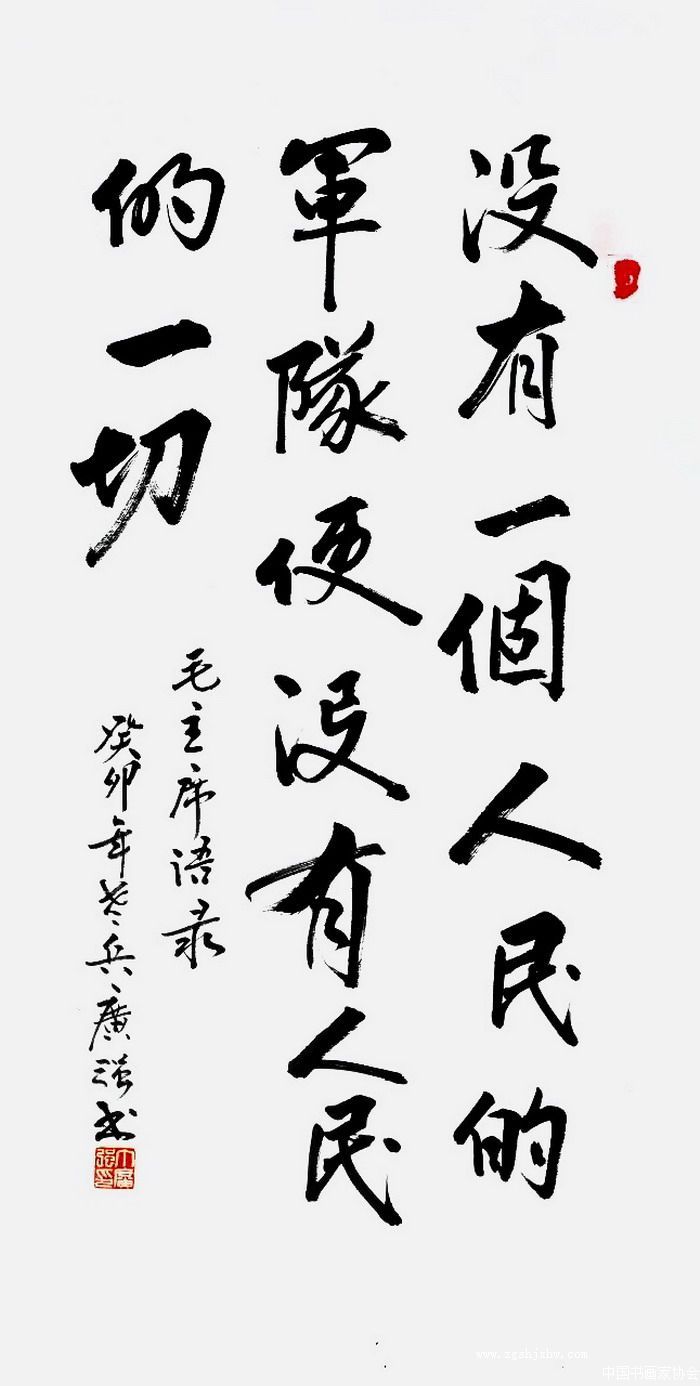 没有一個人民的
軍隊便没有人民
的一切
毛主席语录
癸卯年老兵廣强书
www.zgshjxhw.com
中国书画家协会